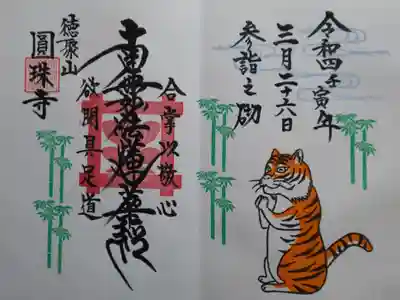 令和四壬寅年
三月二十六日
参詣之砌
合掌以敬心
南無妙法蓮華経
欲聞具足道
圓珠寺